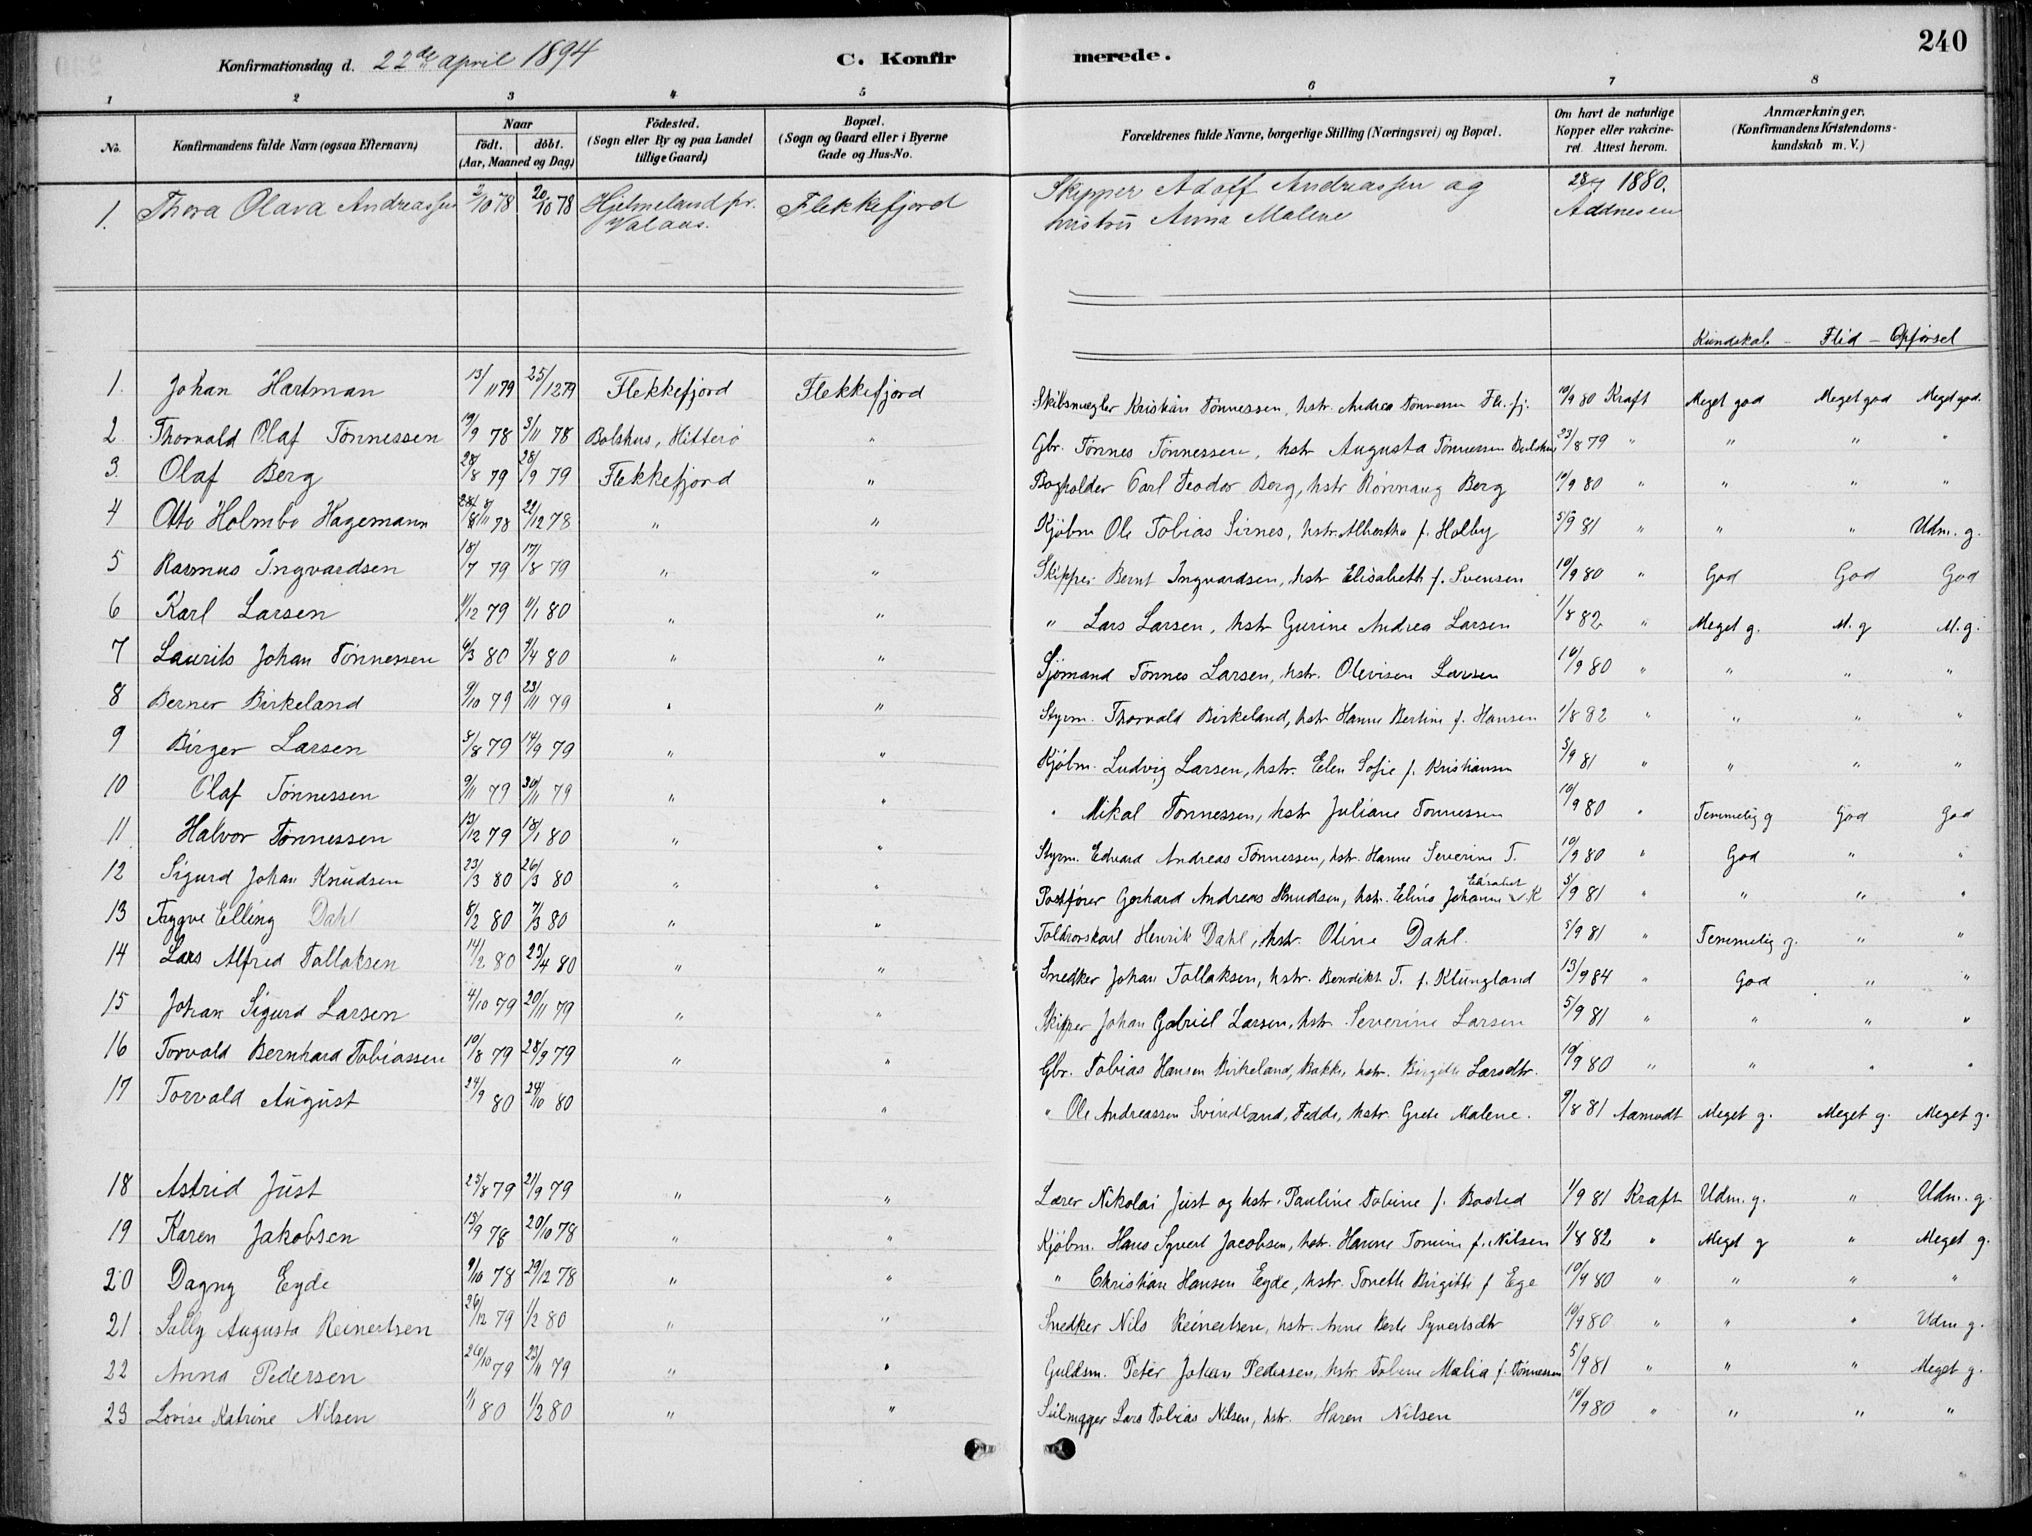 240
Konfirmationsdag d. 22de april 1894 C. Konfirmerede.
1 2 3 4 5 6 7 8
No. Konfirmandens fulde Navn (ogsaa Efternavn) Naar födt. döbt. (Aar, Maaned og Dag) Födested. (Sogn eller By og paa Landet tillige Gaard) Bopæl. (Sogn og Gaard eller i Byerne Gade og Hus-No. Forældrenes fulde Navne, borgerlige Stilling (Næringsvei) og Bopæl. Om havt de naturlige Kopper eller vakcineret. Attest herom. Anmærkninger. (Konfirmandens Kristendomskundskab m. V.)
1. Thora Olava Andreassen 2/10 78 20/10 78 Hjelmeland pr. Valaas. Flekkefjord Skipper Adolf Andreassen og hustru Anna Malene 28/ 1880. Addnesen
Kundskab - Flid - Opførsel
1. Johan Hartman 13/11 79 25/12 79 Flekkefjord Flekkefjord Skibsmægler Kristian Tønnessen, hstr. Andrea Tønnessen Fl. fj. 10/9 80 Kraft Meget god Meget god Meget god.
2 Thorvald Olaf Tønnessen 19/9 78 3/11 78 Bolshus, Hitterø " Gbr. Tønnes Tønnessen, hstr Augusta Tønnessen Bolshus 23/8 79 " " " "
3. Olaf Berg 28/8 79 28/9 79 Flekkefjord " Bogholder Carl Teodor Berg, hstr Rønnaug Berg 10/9 80 " " " "
4 Otto Holmbo Hagemann 8/11 78 22/12 78 " " Kjøbm Ole Tobias Sirnes, hstr. Albertha f. Holby 5/9 81 " " " Udm. g.
5 Rasmus Ingvardsen 18/7 79 17/8 79 " " Skipper Bernt Ingvardsen, hstr Elisabeth f. Svensen 10/9 80 " God God God
6 Karl Larsen 11/12 79 11/1 80 " " " Lars Larsen, hstr Gurine Andrea Larsen 1/8 82 " Meget g. M. g M. g.
7 Laurits Johan Tønnessen 6/3 80 4/4 80 " " Sjømand Tønnes Larsen, hstr. Olevisen Larsen 10/9 80 " " " "
8 Berner Birkeland 9/10 79 23/11 79 " " Styrm. Thorvald Birkeland, hstr Hanne Bertine f. Hansen 1/8 82 " " " "
9 Birger Larsen 5/8 79 14/9 79 " " Kjøbm. Ludvig Larsen, hstr. Elen Sofie f. Kristiansen 5/9 81 " " " "
10 Olaf Tønnessen 9/11 79 30/11 79 " " " Mikal Tønnessen, hstr Juliane Tønnessen 10/9 80 " Temmelig g God God
11 Halvor Tønnessen 13/12 79 18/1 80 " " Styrm. Edvard Andreas Tønnessen, hstr. Hanne Severine T. 10/9 80 " God " "
12 Sigurd Johan Knudsen 23/3 80 26/3 80 " " Postfører Gerhard Andreas Knudsen, hstr. Eline Johanne Elisabet K 5/9 81 " " " "
13 Trygve Elling Dahl 8/2 80 7/3 80 " " Toldrorskarl Henrik Dahl, hstr. Oline Dahl. 5/9 81 " Temmelig g. " "
14 Lars Alfred Tollaksen 14/2 80 23/4 80 " " Snedker Johan Tollaksen, hstr. Bendikte T. f. Klungland 13/9 84 " God " "
15 Johan Sigurd Larsen 4/10 79 20/11 79 " " Skipper Johan Gabriel Larsen, hstr. Severine Larsen 5/9 81 " " " "
16 Torvald Bernhard Tobiassen 10/8 79 28/9 79 " " Gbr. Tobias Hansen Birkeland, Bakke, hstr. Birgitte Larsdtr. 10/9 80 " " " "
17 Torvald August 24/9 80 24/10 80 " " Ole Andreassen Svindland, Fedde, hstr. Grete Malene. 9/8 81 Aamodt Meget g. Meget g. Meget g.
18 Astrid Just 25/8 79 21/9 79 " " Lærer Nikolai Just og hstr. Pauline Tobine f. Bosted 1/9 81 Kraft Udm. g. " Udm. g.
19 Karen Jakobsen 15/9 78 20/10 78 " " Kjøbm. Hans Syvert Jacobsen, hstr. Hanne Tomine f. Nilsen 1/8 82 " Meget g " Meget g.
20 Dagny Eyde 9/10 78 29/12 78 " " " Christian Hansen Eyde, hstr. Tonette Birgitte f Ege 10/9 80 " " " "
21 Sally Augusta Reinertsen 26/12 79 1/2 80 " " Snedker Nils Reinertsen, hstr. Anne Berte Syvertsdtr 10/9 80 " " " Udm g.
22 Anna Pedersen 26/10 79 23/11 79 " " Guldsm. Peter Johan Pedersen, hstr Tobine Malia f. Tønnessen 5/9 81 " " " Meget g.
23 Lovise Katrine Nilsen 1/1 80 1/2 80 " " Seilmager Lars Tobias Nilsen, hstr. Karen Nilsen 10/9 80 " " " "